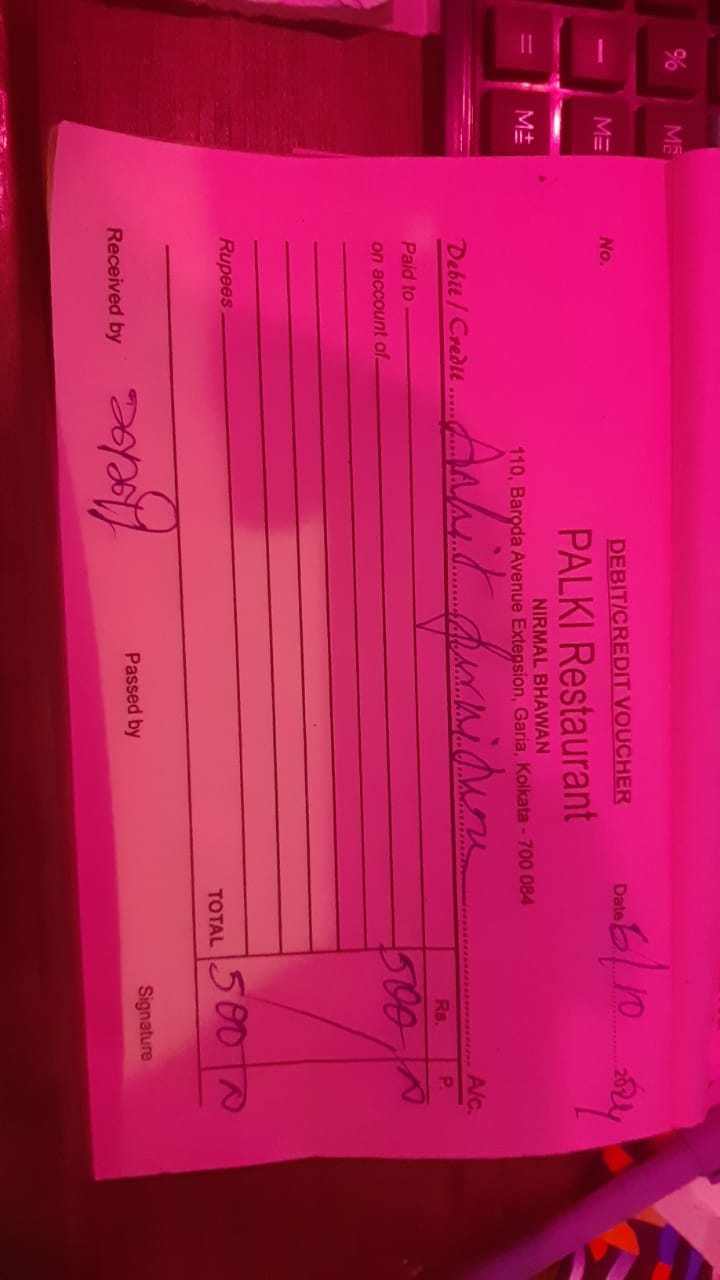 DEBIT/CREDIT VOUCHER
PALKI Restaurant
NIRMAL BHAWAN
110, Baroda Avenue Extension, Garia, Kolkata - 700 084
No.
Date 6/10 2024
Debit / Credit Ankit furniture A/c.
Rs. P.
Paid to 500
on account of
Rupees
TOTAL 500
Received by Passed by Signature
% − =
M= M±